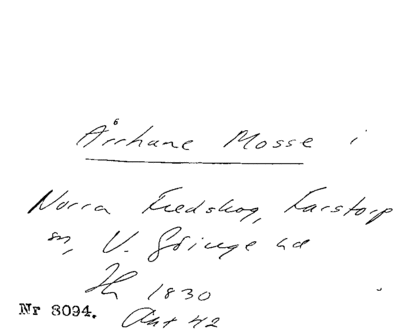 Årrhane Mosse i
Norra Fredskog, Farstorp
sn, V. Göinge hd
1830
Nr 8094. Akt 42